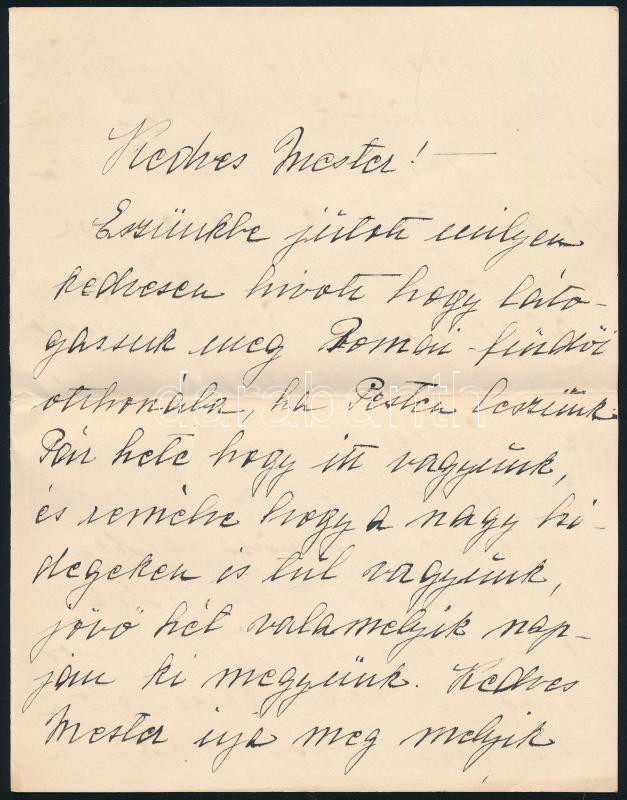 Kedves Mester! —
Eszünkbe jutott milyen
kedvesen hivott hogy láto-
gassuk meg Romai-fürdői
otthonába, ha Pesten leszünk.
Pár hete hogy itt vagyunk,
és remélve hogy a nagy hi-
degeken is túl vagyunk,
jövő hét valamelyik nap-
ján ki megyünk. Kedves
Mester irja meg melyik
darabanth